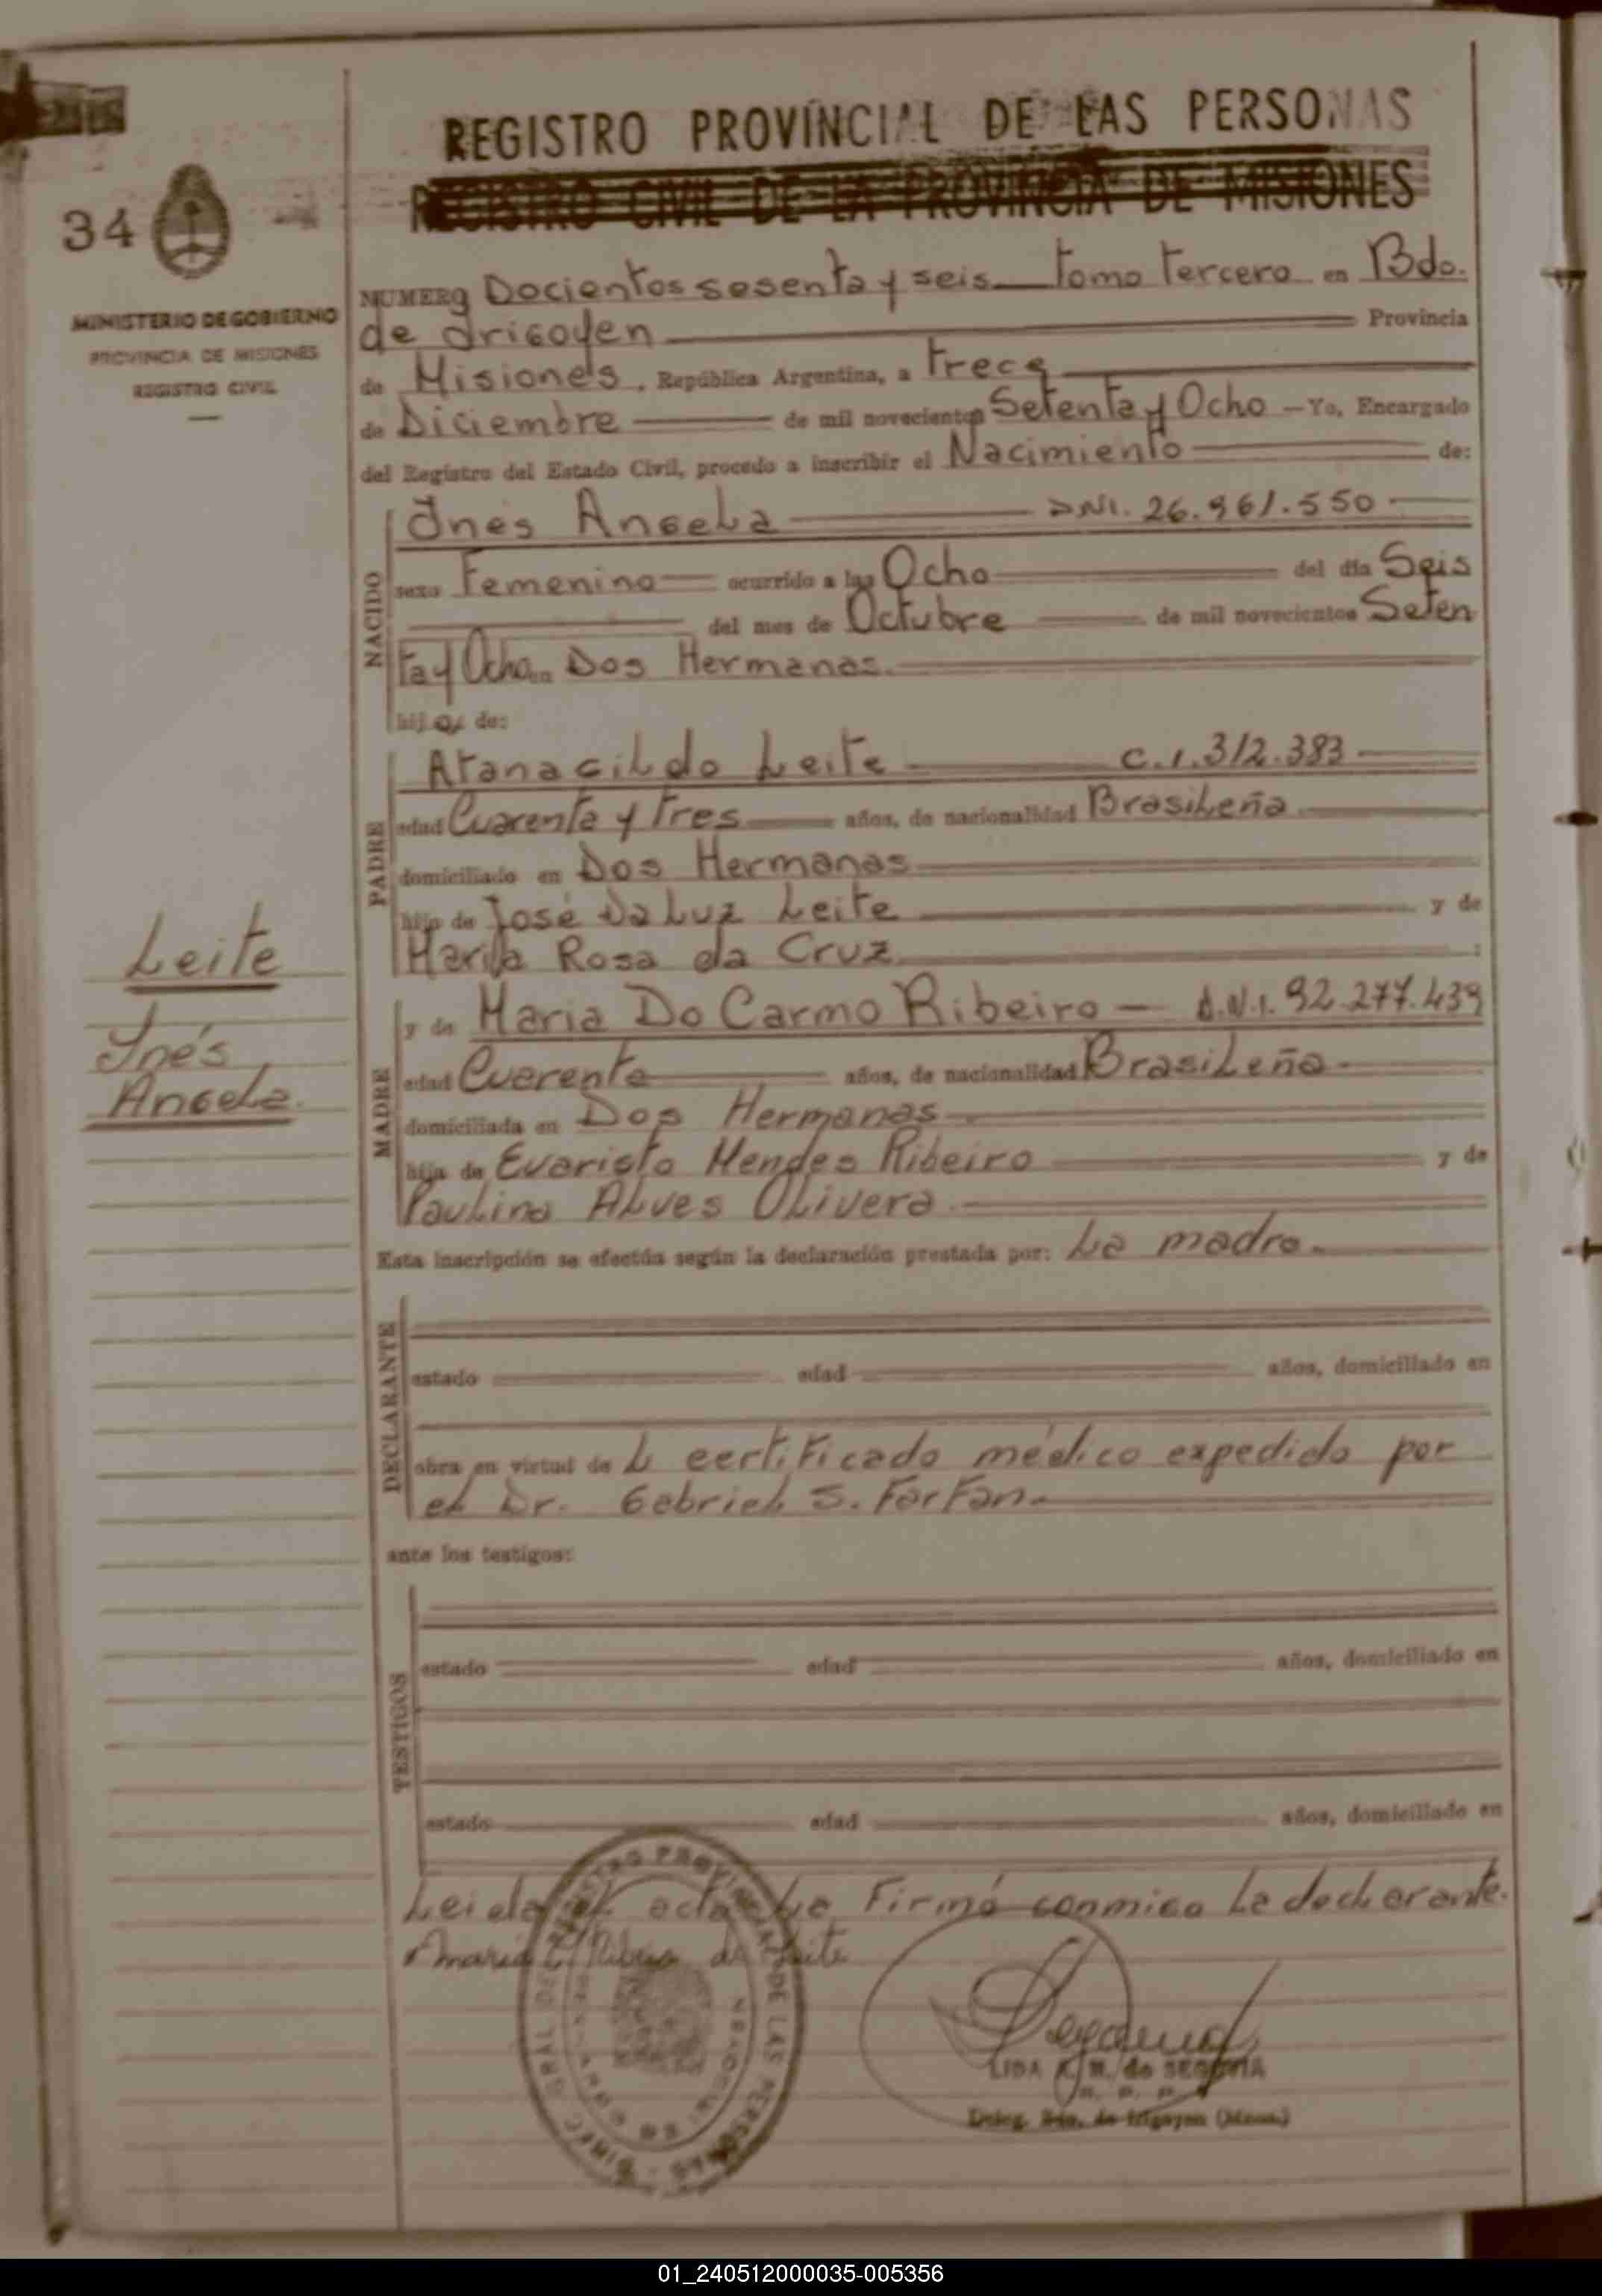 REGISTRO PROVINCIAL DE LAS PERSONAS
REGISTRO CIVIL DE LA PROVINCIA DE MISIONES
34
MINISTERIO DE GOBIERNO
PROVINCIA DE MISIONES
REGISTRO CIVIL
NUMERO Docientos sesenta y seis tomo tercero en Bdo.
de Irigoyen Provincia
de Misiones, República Argentina, a trece
de Diciembre de mil novecientos Setenta y Ocho - Yo, Encargado
del Registro del Estado Civil, procedo a inscribir el Nacimiento de:
NACIDO
Ines Angela DNI. 26.961.550
sexo Femenino ocurrido a las Ocho del día Seis
del mes de Octubre de mil novecientos Seten
ta y Ocho en Dos Hermanas.
hija de:
PADRE
Atanagildo Leite C.I. 312.383
edad Cuarenta y tres años, de nacionalidad Brasileña
domiciliado en Dos Hermanas
hijo de José Da Luz Leite y de
Maria Rosa da Cruz
Leite
Inés
Angela.
MADRE
y de Maria Do Carmo Ribeiro - d.N.I. 92.277.439
edad Cuarenta años, de nacionalidad Brasileña
domiciliada en Dos Hermanas
hija de Evaristo Mendes Ribeiro y de
Paulina Alves Olivera
Esta inscripción se efectúa según la declaración prestada por: La madre.
DECLARANTE
estado edad años, domiciliado en
obra en virtud de L certificado médico expedido por
el Dr. Gabriel S. Farfan.
ante los testigos:
TESTIGOS
estado edad años, domiciliado en
estado edad años, domiciliado en
Leida el acta La Firmó conmigo La declarante.
Maria de Leite
LIDA de SEGOVIA
Deleg. Bdo. de Irigoyen (Mnes.)
01_240512000035-005356